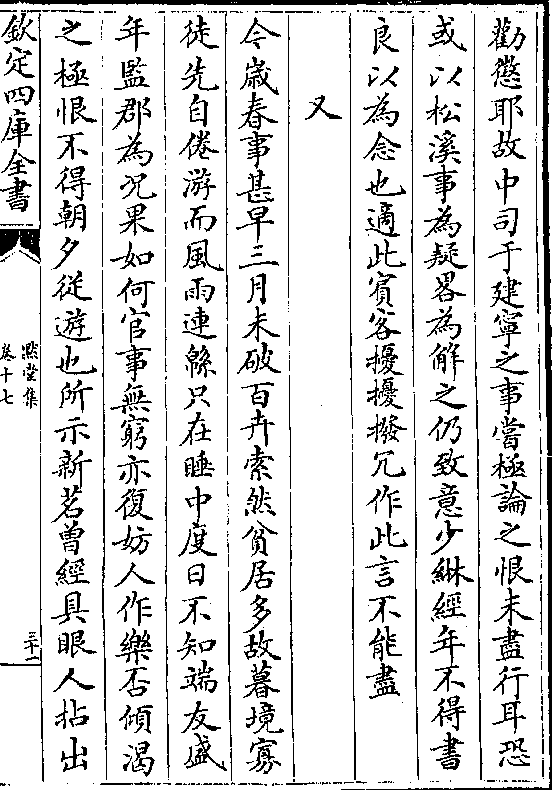 勸懲耶故中司于建寧之事嘗極論之恨未盡行耳恐
或以松溪事為疑畧為解之仍致意少綝經年不得書
良以為念也適此賓客擾擾撥冗作此言不能盡
又
今嵗春事甚早三月未破百卉索然貧居多故暮境寡
徒先自倦游而風雨連緜只在睡中度日不知端友盛
年監郡為况果如何官事無窮亦復妨人作樂否傾渴
之極恨不得朝夕從遊也所示新茗曾經具眼人拈出
欽定四庫全書
默堂集
卷十七
三十一